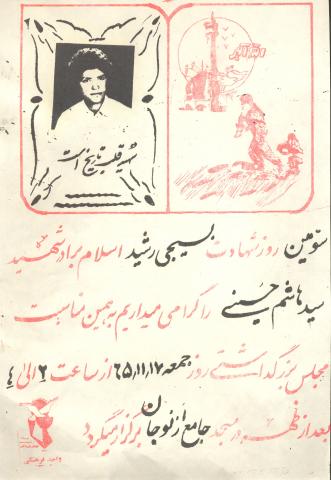 الله اکبر
شهید قلب تاریخ است
سومین روز شهادت بسیجی رشید اسلام برادر شهید
سید هاشم حسینی را گرامی میداریم به همین مناسبت
مجلس بزرگداشتی روز جمعه ۶۵,۱۱,۱۷ از ساعت ۲ الی ۴
بعد از ظهر در مسجد جامع ازنوجان برگزار میگردد
واحد فرهنگی